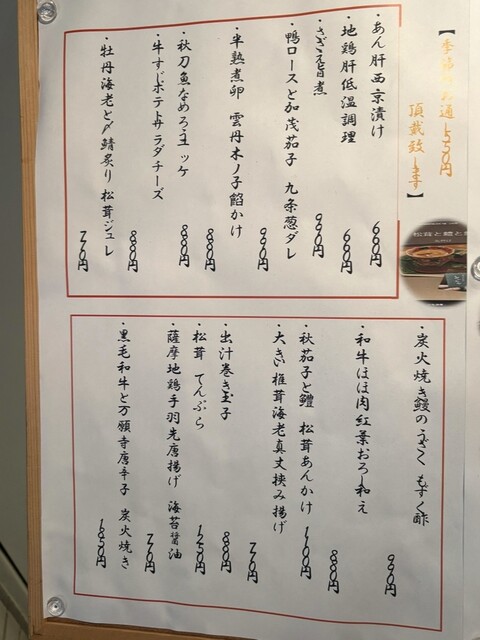 【季節のお通し550円
頂戴致します】
・あん肝西京漬け 660円
・地鶏肝低温調理 660円
・さざえ旨煮 990円
・鴨ロースと加茂茄子 九条葱ダレ 990円
・半熟煮卵 雲丹木ノ子餡かけ 880円
・秋刀魚なめろうユッケ 880円
・牛すじポテトサラダチーズ 880円
・牡丹海老と〆鯖炙り 松茸ジュレ 770円
・炭火焼き鰻のうざく もずく酢 930円
・和牛ほほ肉紅葉おろし和え 880円
・秋茄子と鱧 松茸あんかけ 1100円
・大きい椎茸海老真丈挟み揚げ 770円
・出汁巻き玉子 880円
・松茸 てんぷら 1250円
・薩摩地鶏手羽先唐揚げ 海苔醤油 770円
・黒毛和牛と万願寺唐辛子 炭火焼き 1850円